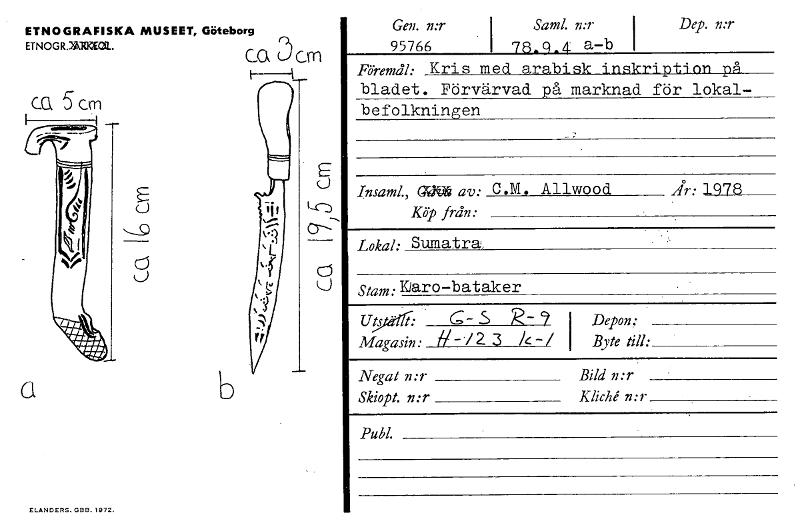 ETNOGRAFISKA MUSEET, Göteborg
ETNOGR.
ca 3 cm
ca 5 cm
ca 16 cm
ca 19,5 cm
a
b
ELANDERS. GBB. 1972.
Gen. n:r Saml. n:r Dep. n:r
95766 78.9.4 a-b
Föremål: Kris med arabisk inskription på
bladet. Förvärvad på marknad för lokal-
befolkningen
Insaml., av: C.M. Allwood År: 1978
Köp från:
Lokal: Sumatra
Stam: Karo-bataker
Utställt: G-S R-9 Depon:
Magasin: H-123 k-1 Byte till:
Negat n:r Bild n:r
Skiopt. n:r Kliché n:r
Publ.